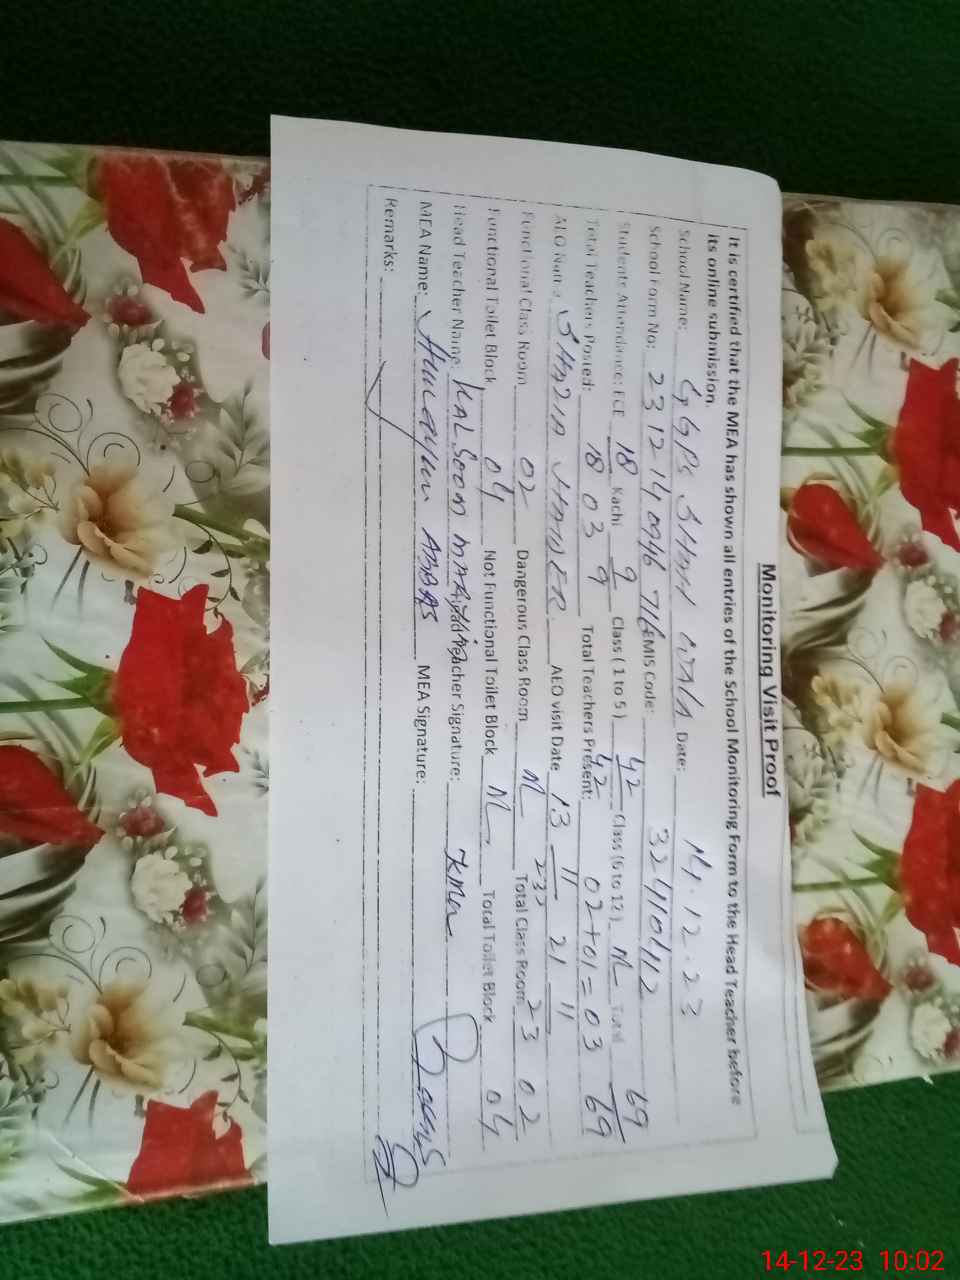 Monitoring Visit Proof
It is certified that the MEA has shown all entries of the School Monitoring Form to the Head Teacher before
its online submission.
School Name: GGPS Date: 14.12.23
School Form No: EMIS Code: 32410112
Students Attendance: ECE 18 Kachi 9 Class (1 to 5) 42 Class (6 to 12) Total 69
18 9 42 69
Total Teachers Posted: 03 Total Teachers Present: 02+01=03
AEO Name SHAZIA AEO visit Date 13 11 23 21 11 23
Functional Class Room 02 Dangerous Class Room Total Class Room 02
Functional Toilet Block 04 Not Functional Toilet Block Total Toilet Block 04
Head Teacher Name: KALSOOM Teacher Signature:
MEA Name: Humayun ABBAS MEA Signature:
Remarks:
14-12-23 10:02